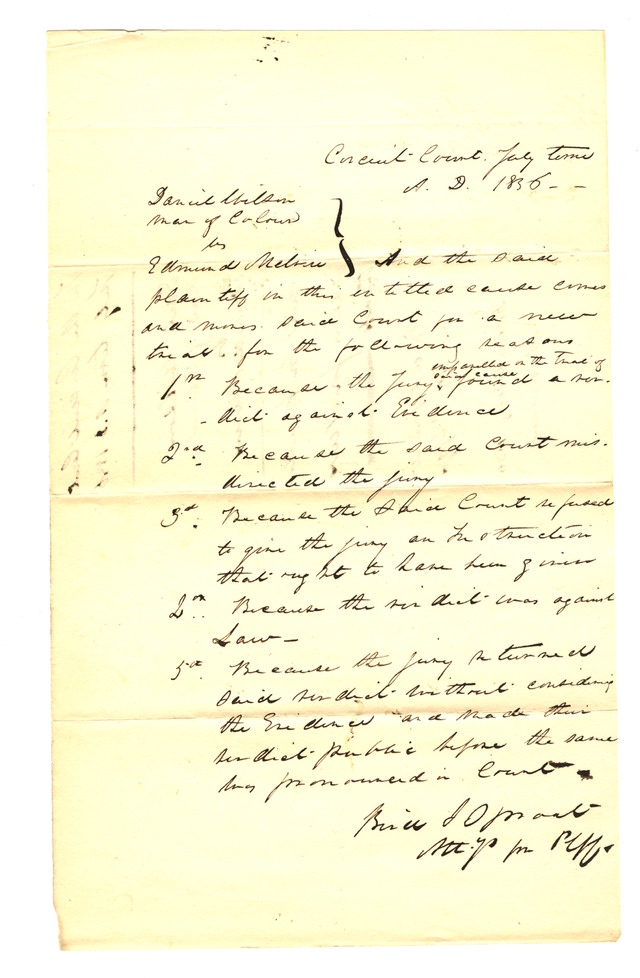 Circuit Court. July term
A. D. 1836 - -
Daniel Wilson
man of Colour
vs
Edmund Melvin } And the said
plaintiff in this entitled cause comes
and moves said Court for a new
trial for the following reasons
1st Because the Jury found a ver-
impanelled on the trial of
said cause
dict against Evidence
2nd Because the said Court mis-
directed the jury
3d. Because the said Court refused
to give the jury an Instruction
that ought to have been given
Because the verdict was against
Law -
5th. Because the jury returned
said verdict without considering
the Evidence and made their
verdict public before the same
was pronounced in Court
Bird &
Att.ys for Plff.